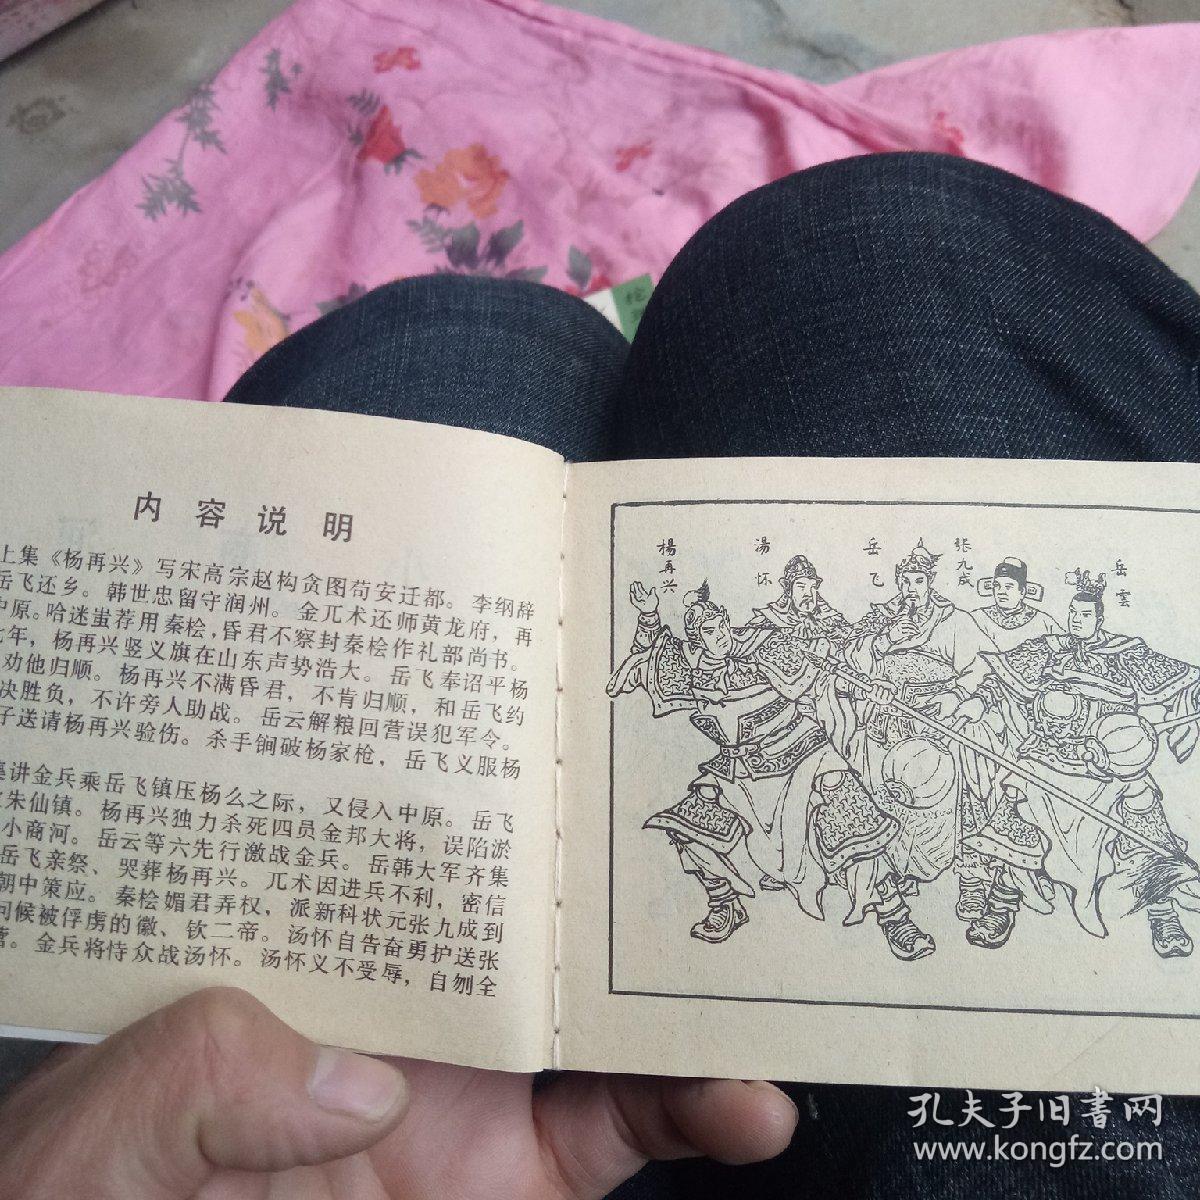 内容说明
上集《杨再兴》写宋高宗赵构贪图苟安迁都。李纲辞
岳飞还乡。韩世忠留守润州。金兀术还师黄龙府，再
中原。哈迷蚩荐用秦桧，昏君不察封秦桧作礼部尚书。
七年，杨再兴竖义旗在山东声势浩大。岳飞奉诏平杨
劝他归顺。杨再兴不满昏君，不肯归顺，和岳飞约
决胜负，不许旁人助战。岳云解粮回营误犯军令。
子送请杨再兴验伤。杀手锏破杨家枪，岳飞义服杨
集讲金兵乘岳飞镇压杨么之际，又侵入中原。岳飞
朱仙镇。杨再兴独力杀死四员金邦大将，误陷淤
小商河。岳云等六先行激战金兵。岳韩大军齐集
岳飞亲祭、哭葬杨再兴。兀术因进兵不利，密信
朝中策应。秦桧媚君弄权，派新科状元张九成到
问候被俘虏的徽、钦二帝。汤怀自告奋勇护送张
营。金兵将恃众战汤怀。汤怀义不受辱，自刎全
楊再兴
湯怀
岳飞
张九成
岳雲
孔夫子旧書网
www.kongfz.com